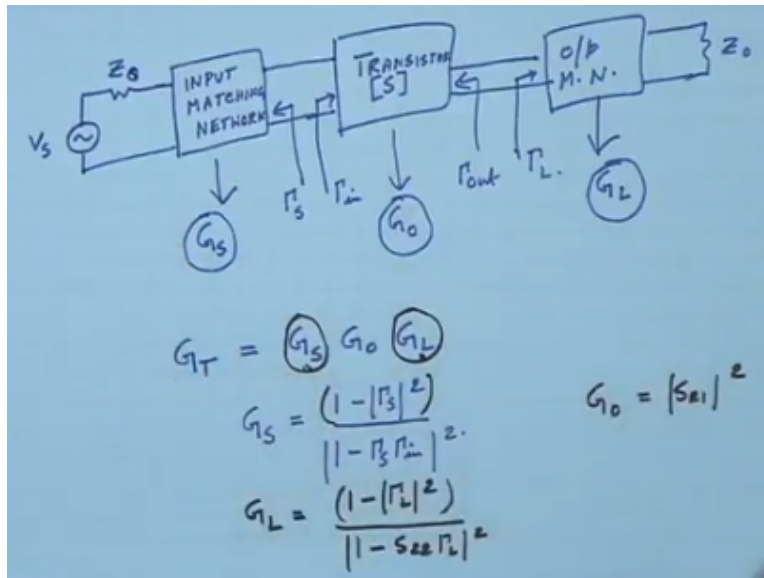 Z₀
INPUT
MATCHING
NETWORK
TRANSISTOR
[S]
O/P
M.N.
Z₀
V_S
Γ_S
Γ_in
Γ_out
Γ_L.
G_S
G_0
G_L
G_T = G_S G_0 G_L
G_S = (1-|Γ_S|²) / |1-Γ_S Γ_in|².
G_0 = |S₂₁|²
G_L = (1-|Γ_L|²) / |1-S₂₂ Γ_L|²